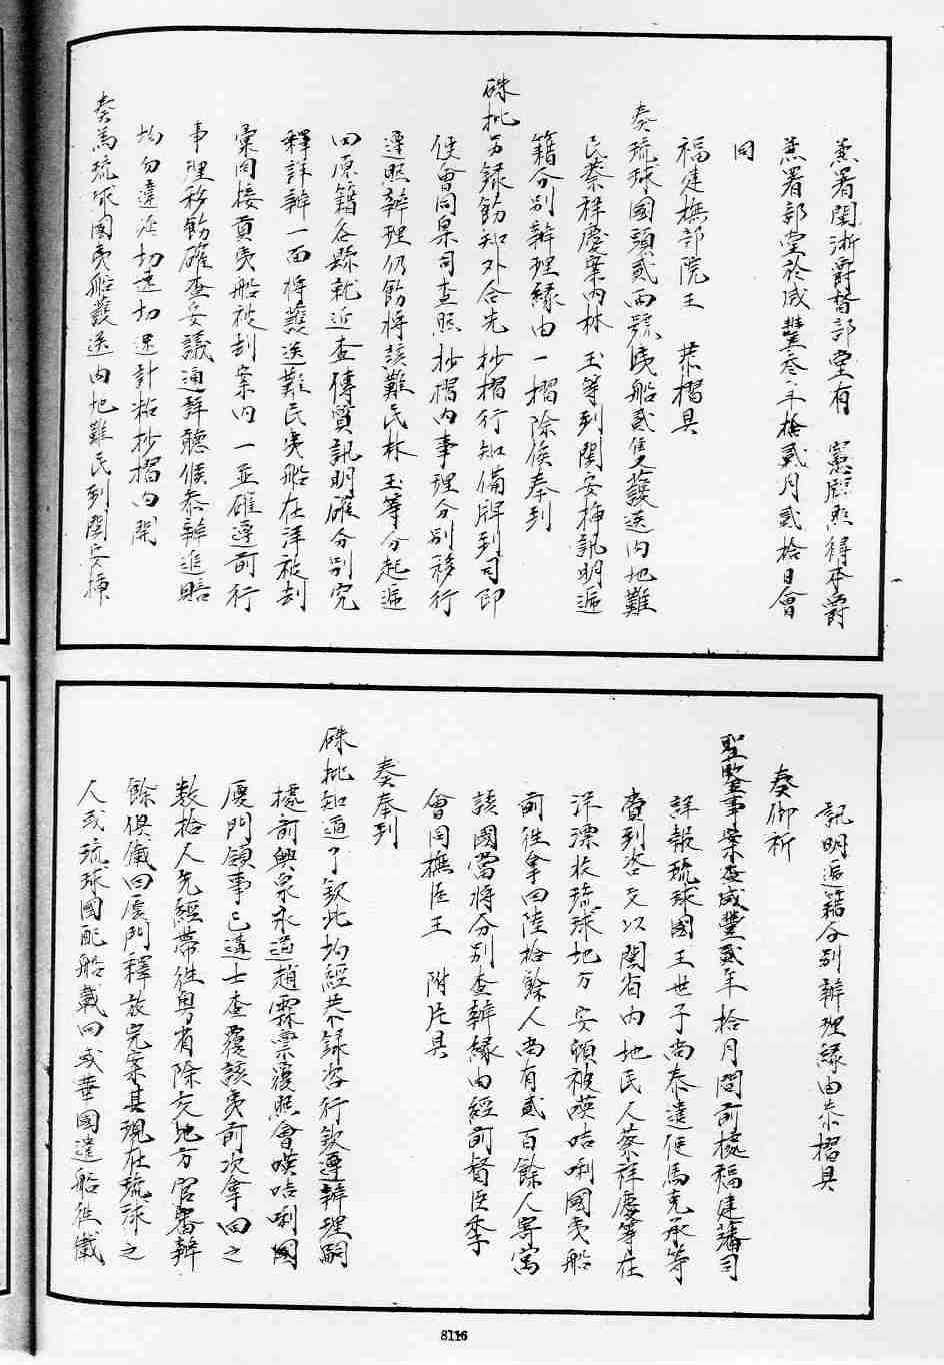 兼署閩浙爵督部堂有　憲牌照得本爵
兼署部堂於咸豐叁年拾貳月貳拾日會
同
福建撫部院王　恭摺具
奏琉球國頭貳兩號夷船貳隻護送內地難
民蔡祥慶案內林玉等到閩安揷訊明遞
籍分別辦理緣由一摺除俟奉到
硃批另錄飭知外合先抄摺行知備牌到司即
便會同臬司查照抄摺內事理分別移行
遵照辦理仍飭將該難民林玉等分起遞
回原籍各縣就近查傳質訊明確分別究
釋詳辦一面將護送難民夷船在洋被刦
彙同接貢夷船被刦案內一並確遵前行
事理移飭確查妥議通詳聽候恭辦進賠
均勿違延切速切速計粘抄摺內開
奏爲琉球國夷船護送內地難民到閩安揷
訊明遞籍分別辦理緣由恭摺具
奏仰祈
聖鑒事案查咸豐貳年拾月間前據福建藩司
詳報琉球國王世子尚泰遣使馬克承等
賫到咨文以閩省內地民人蔡祥慶等在
洋漂收琉球地方安頓被𠸄咭唎國夷船
前徃拿回陸拾餘人尚有貳百餘人寄寓
該國當將分別查辦緣由經前督臣季
會同撫臣王　附片具
奏奉到
硃批知道了欽此均經恭錄咨行欽遵辦理嗣
據前興泉永道趙霖稟覆照會𠸄咭唎國
厦門領事巴遘士查覆該夷前次拿回之
數拾人先經帶徃粤省除交地方官審辦
餘俱儎回厦門釋放完案其現在琉球之
人或琉球國配船載回或華國遣船徃儎
8116